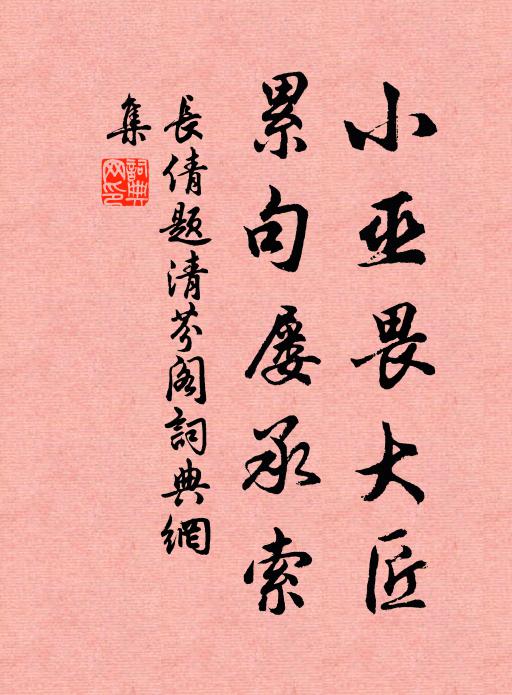 小巫畏大匠
累句屡承索
長倩題清芬阁詞典網
集
詞典
网印